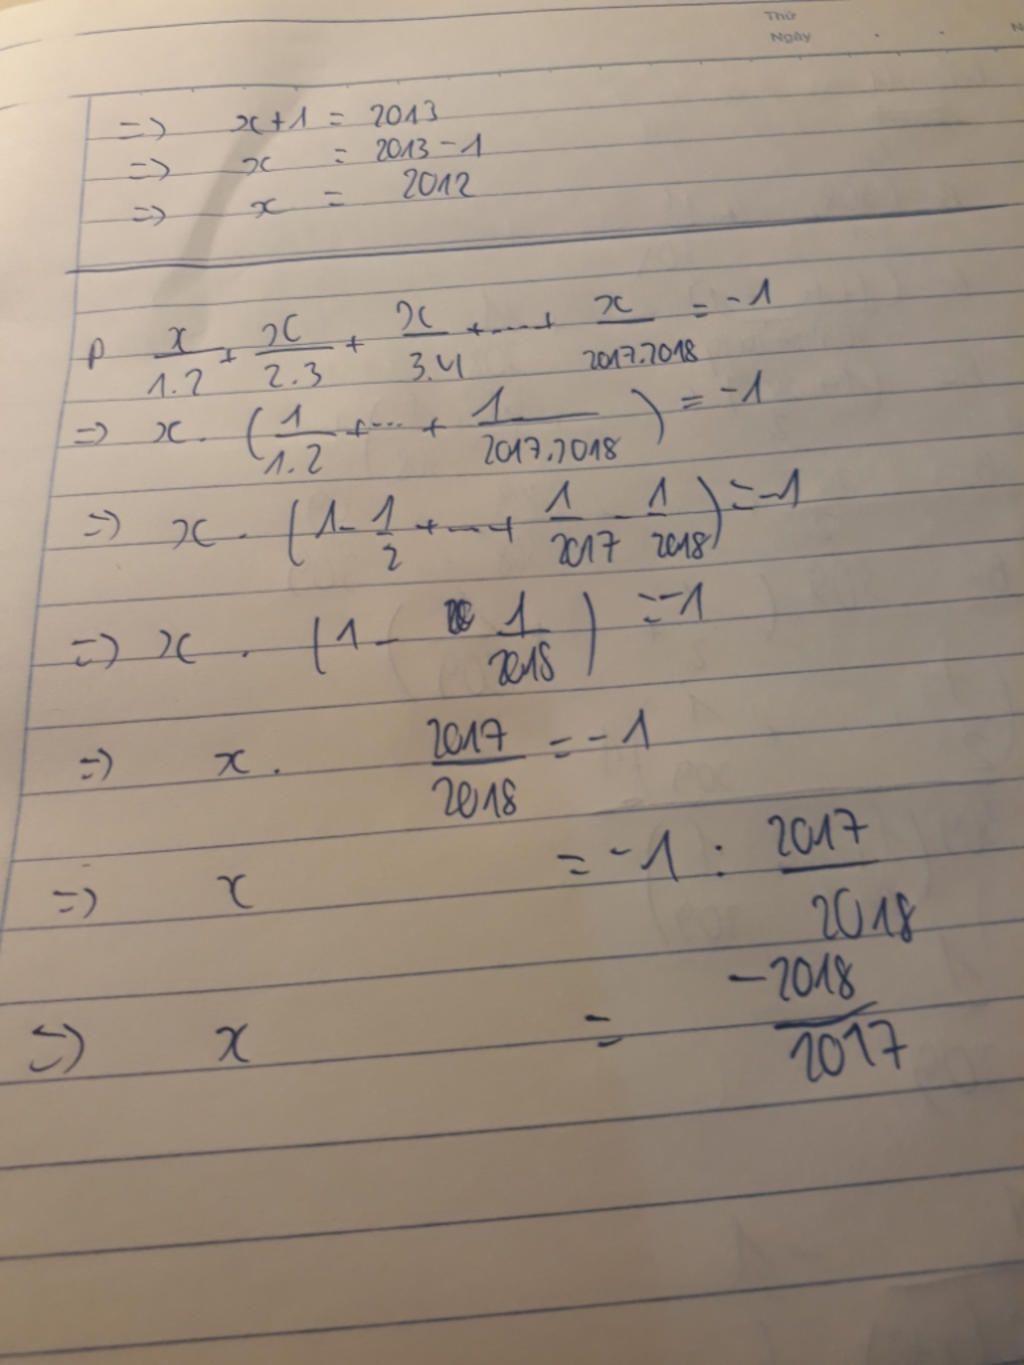 Thứ
Ngày
=> x+1 = 2013
=> x = 2013-1
=> x = 2012
p x/1.2 + x/2.3 + x/3.4 +....+ x/2017.2018 = -1
=> x. (1/1.2 +...+ 1/2017.2018) = -1
=> x. (1-1/2 +....+ 1/2017 - 1/2018) = -1
=> x. (1- 1/2018) = -1
=> x. 2017/2018 = -1
=> x = -1 : 2017/2018
=> x = -2018/2017